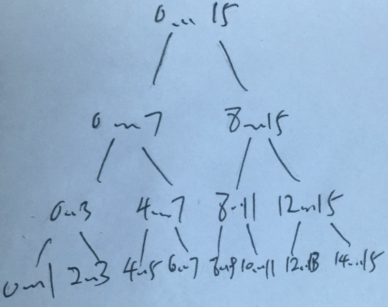 0...15
0...7 8...15
0...3 4...7 8...11 12...15
0...1 2...3 4...5 6...7 8...9 10...11 12...13 14...15